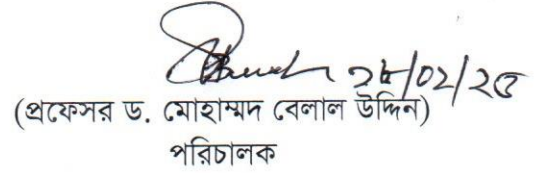 ২৮/০২/২৫
(প্রফেসর ড. মোহাম্মদ বেলাল উদ্দিন)
পরিচালক